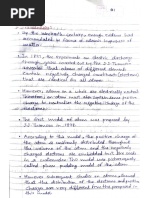 By the nineteenth century enough evidence had
accumulated in favour of atomic hypothesis of
matter.
In 1897, the experiments on electric discharge
through gases
suggested that atoms of different elements
contain negatively charged constituents (electrons)
that are identical for all atoms.
However, atoms as a whole are electrically neutral.
Therefore, an atom must also contain some positive
charge to neutralise the negative charge of the
electrons.
The first model of atom was proposed by
J.J. Thomson in 1898.
According to this model, the positive charge of
the atom is uniformly distributed throughout
the volume of the atom and the negatively
charged electrons are embedded in it like seeds
in a watermelon. This model was picturesquely
called plum pudding model of the atom.
However subsequent studies on atoms showed
that the distribution of the electrons and positive
charge are very different from the proposed in
this model.